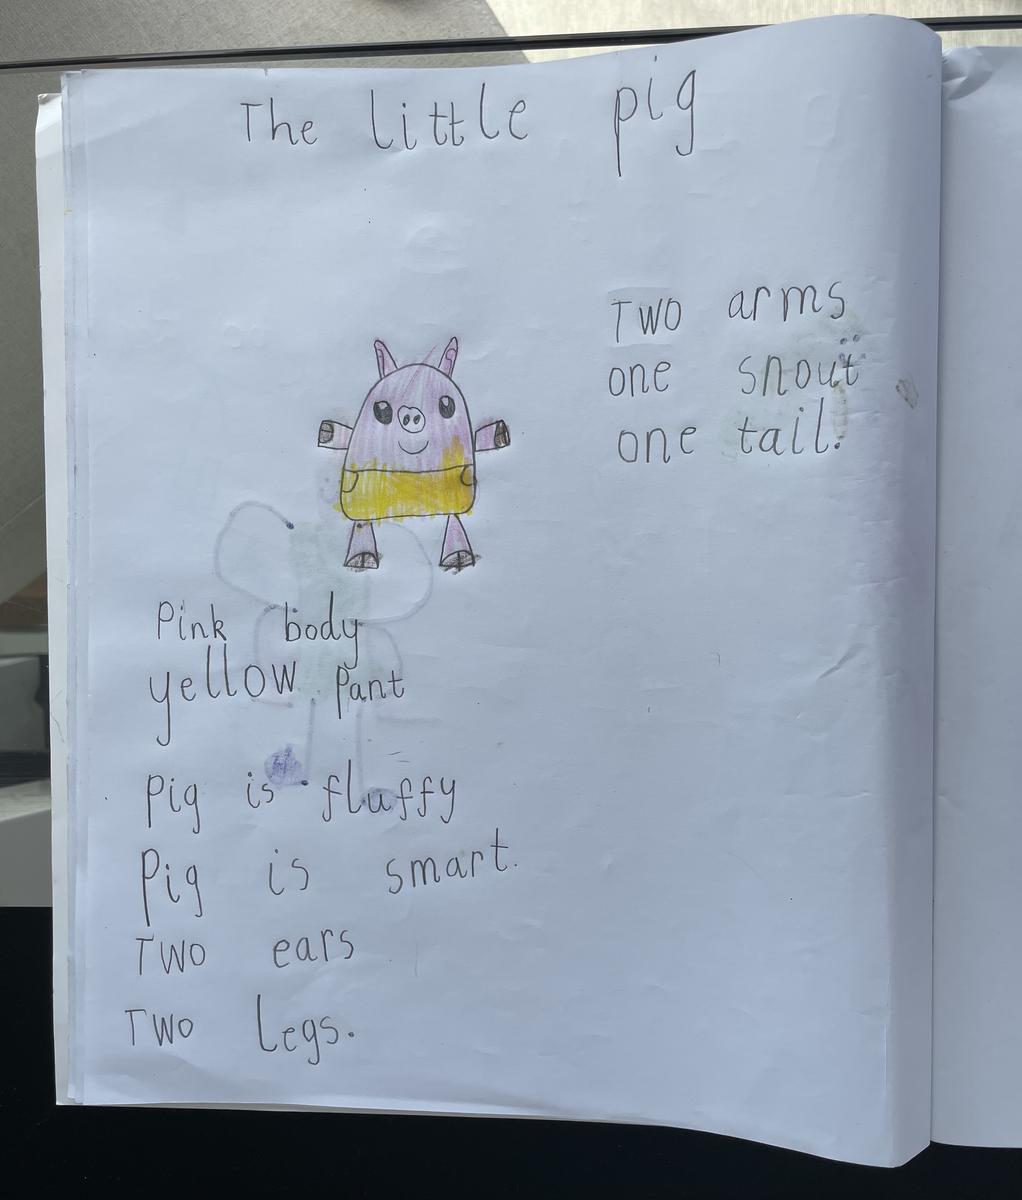 The little pig
Two arms
one snout
one tail.
Pink body
yellow pant
Pig is fluffy
Pig is smart.
Two ears
Two legs.